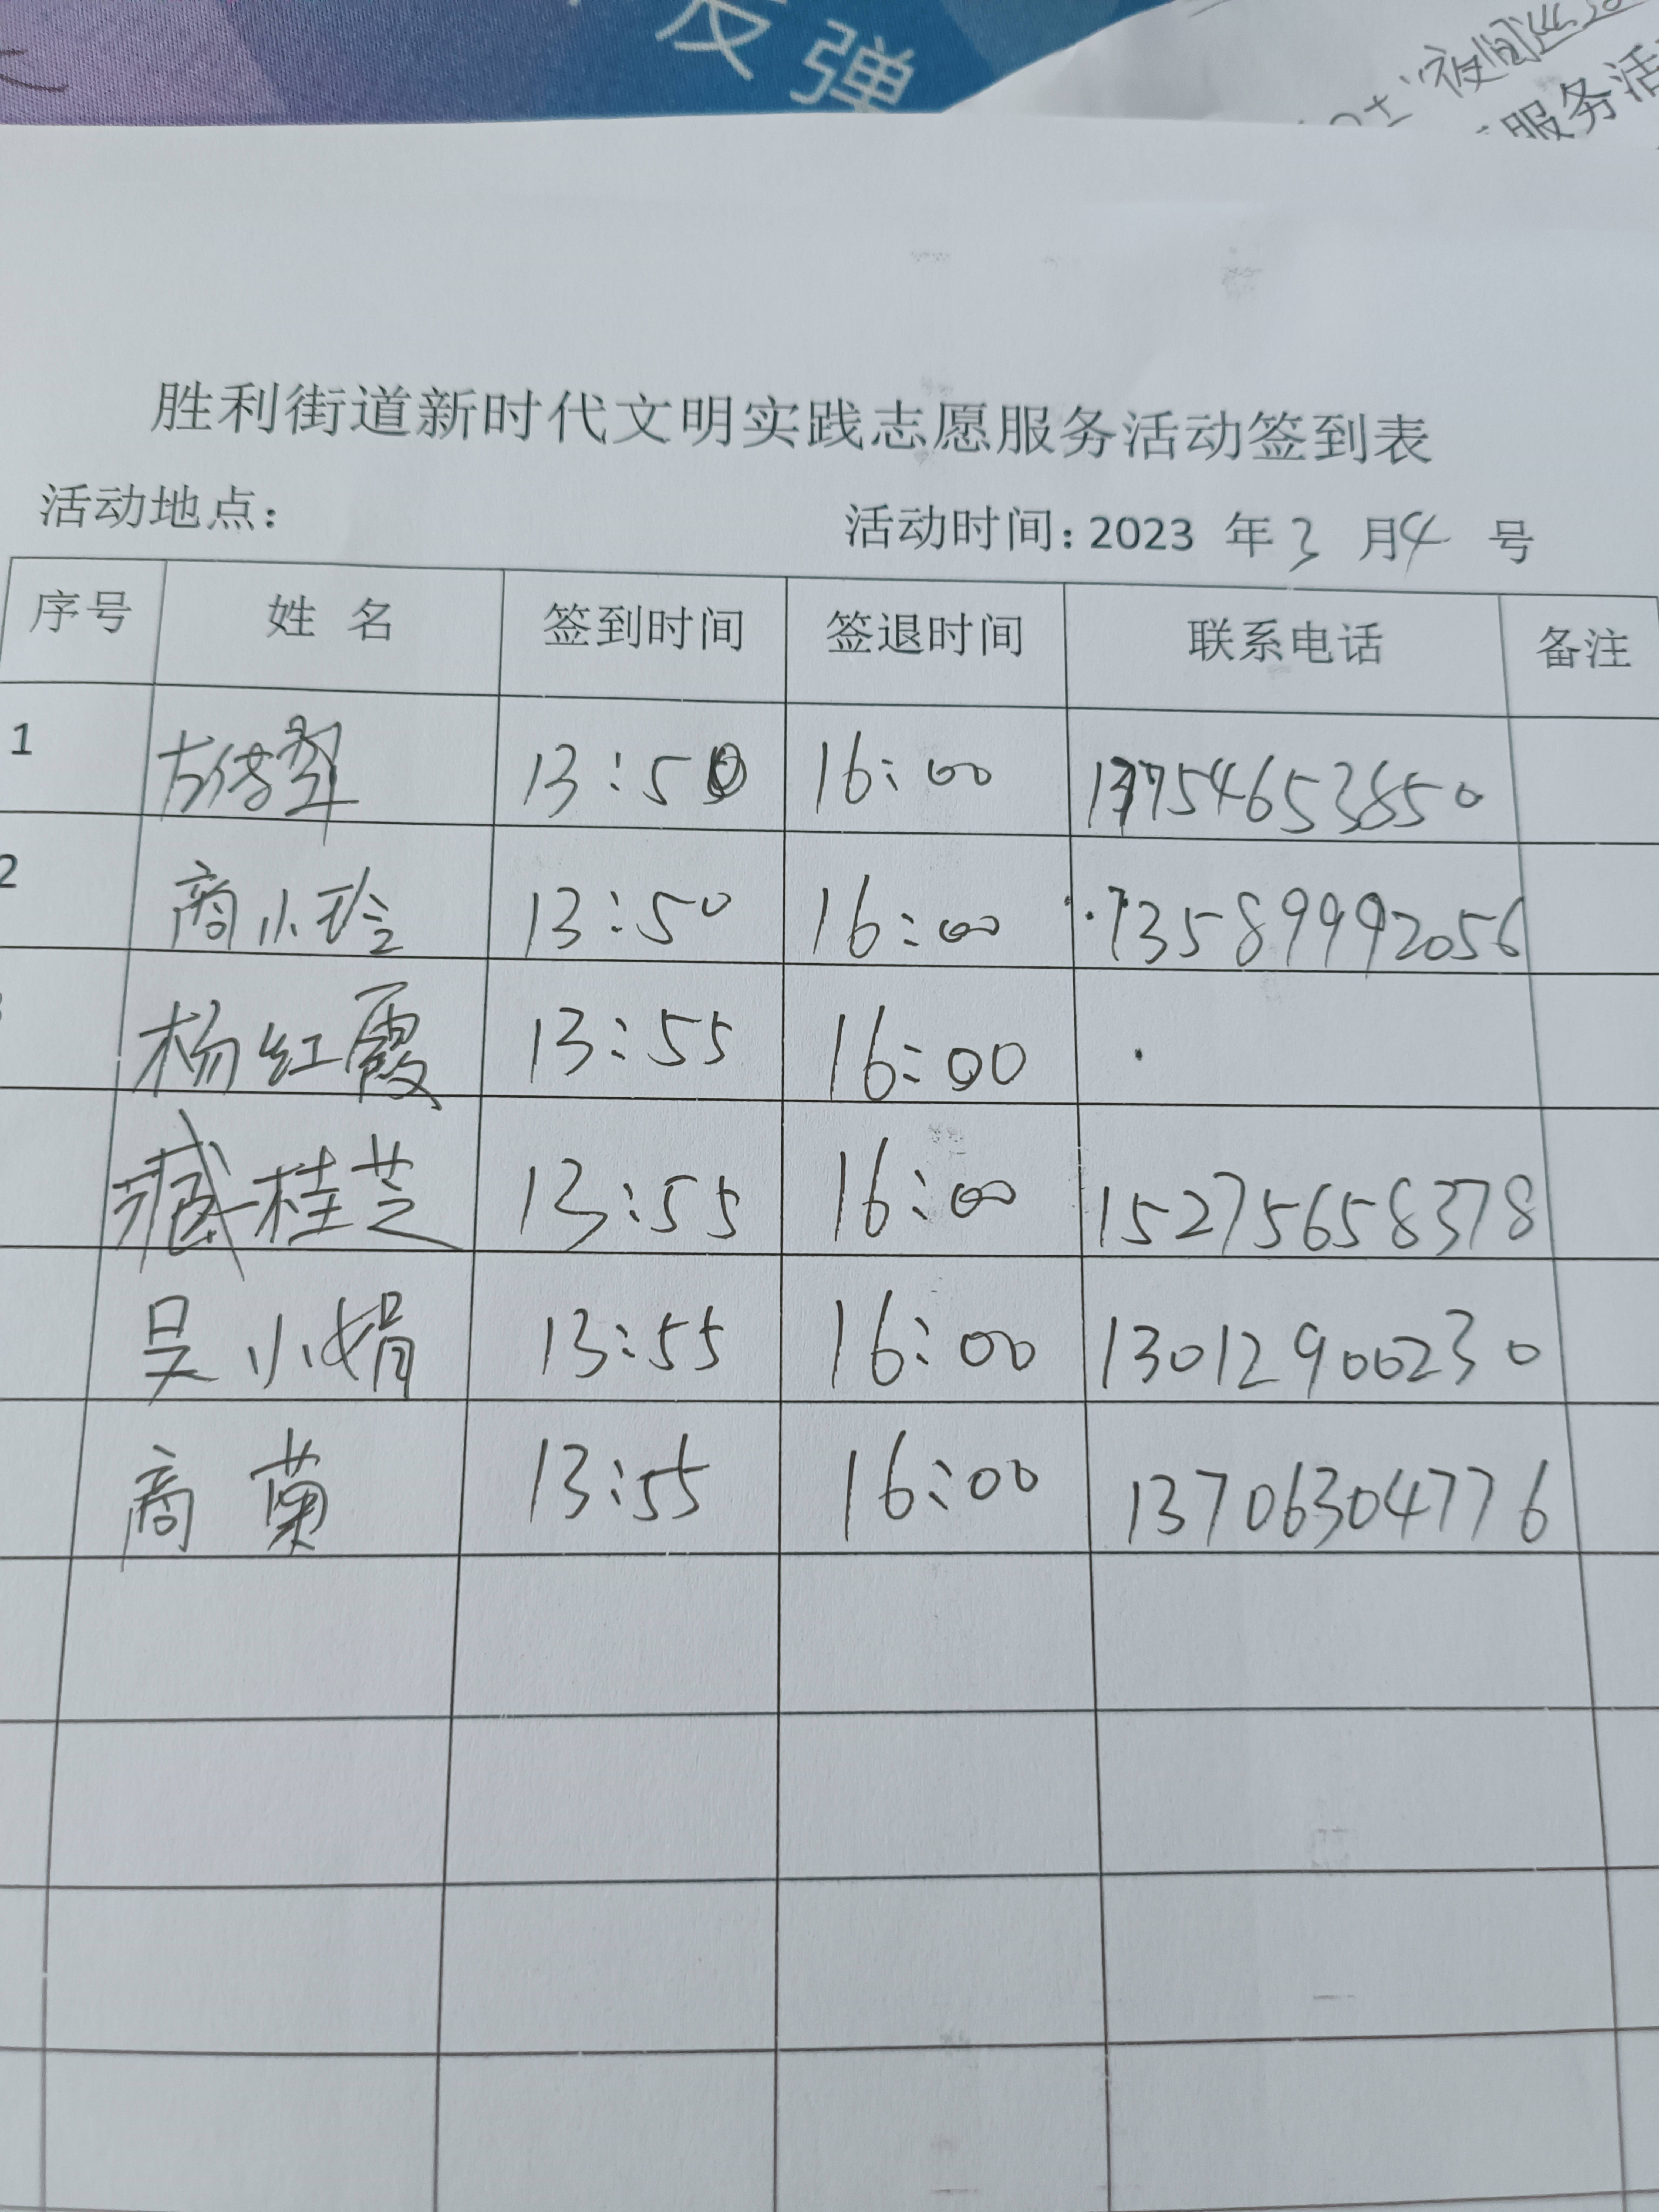 反弹
夜间巡
服务活
胜利街道新时代文明实践志愿服务活动签到表
活动地点: 活动时间: 2023 年 3 月 4 号
序号 姓 名 签到时间 签退时间 联系电话 备注
1 13:50 16:00 13754653850
2 商小玲 13:50 16:00 13589992056
杨红霞 13:55 16:00
臧桂芝 13:55 16:00 15275658378
吴小娟 13:55 16:00 13012900230
商菊 13:55 16:00 13706304776